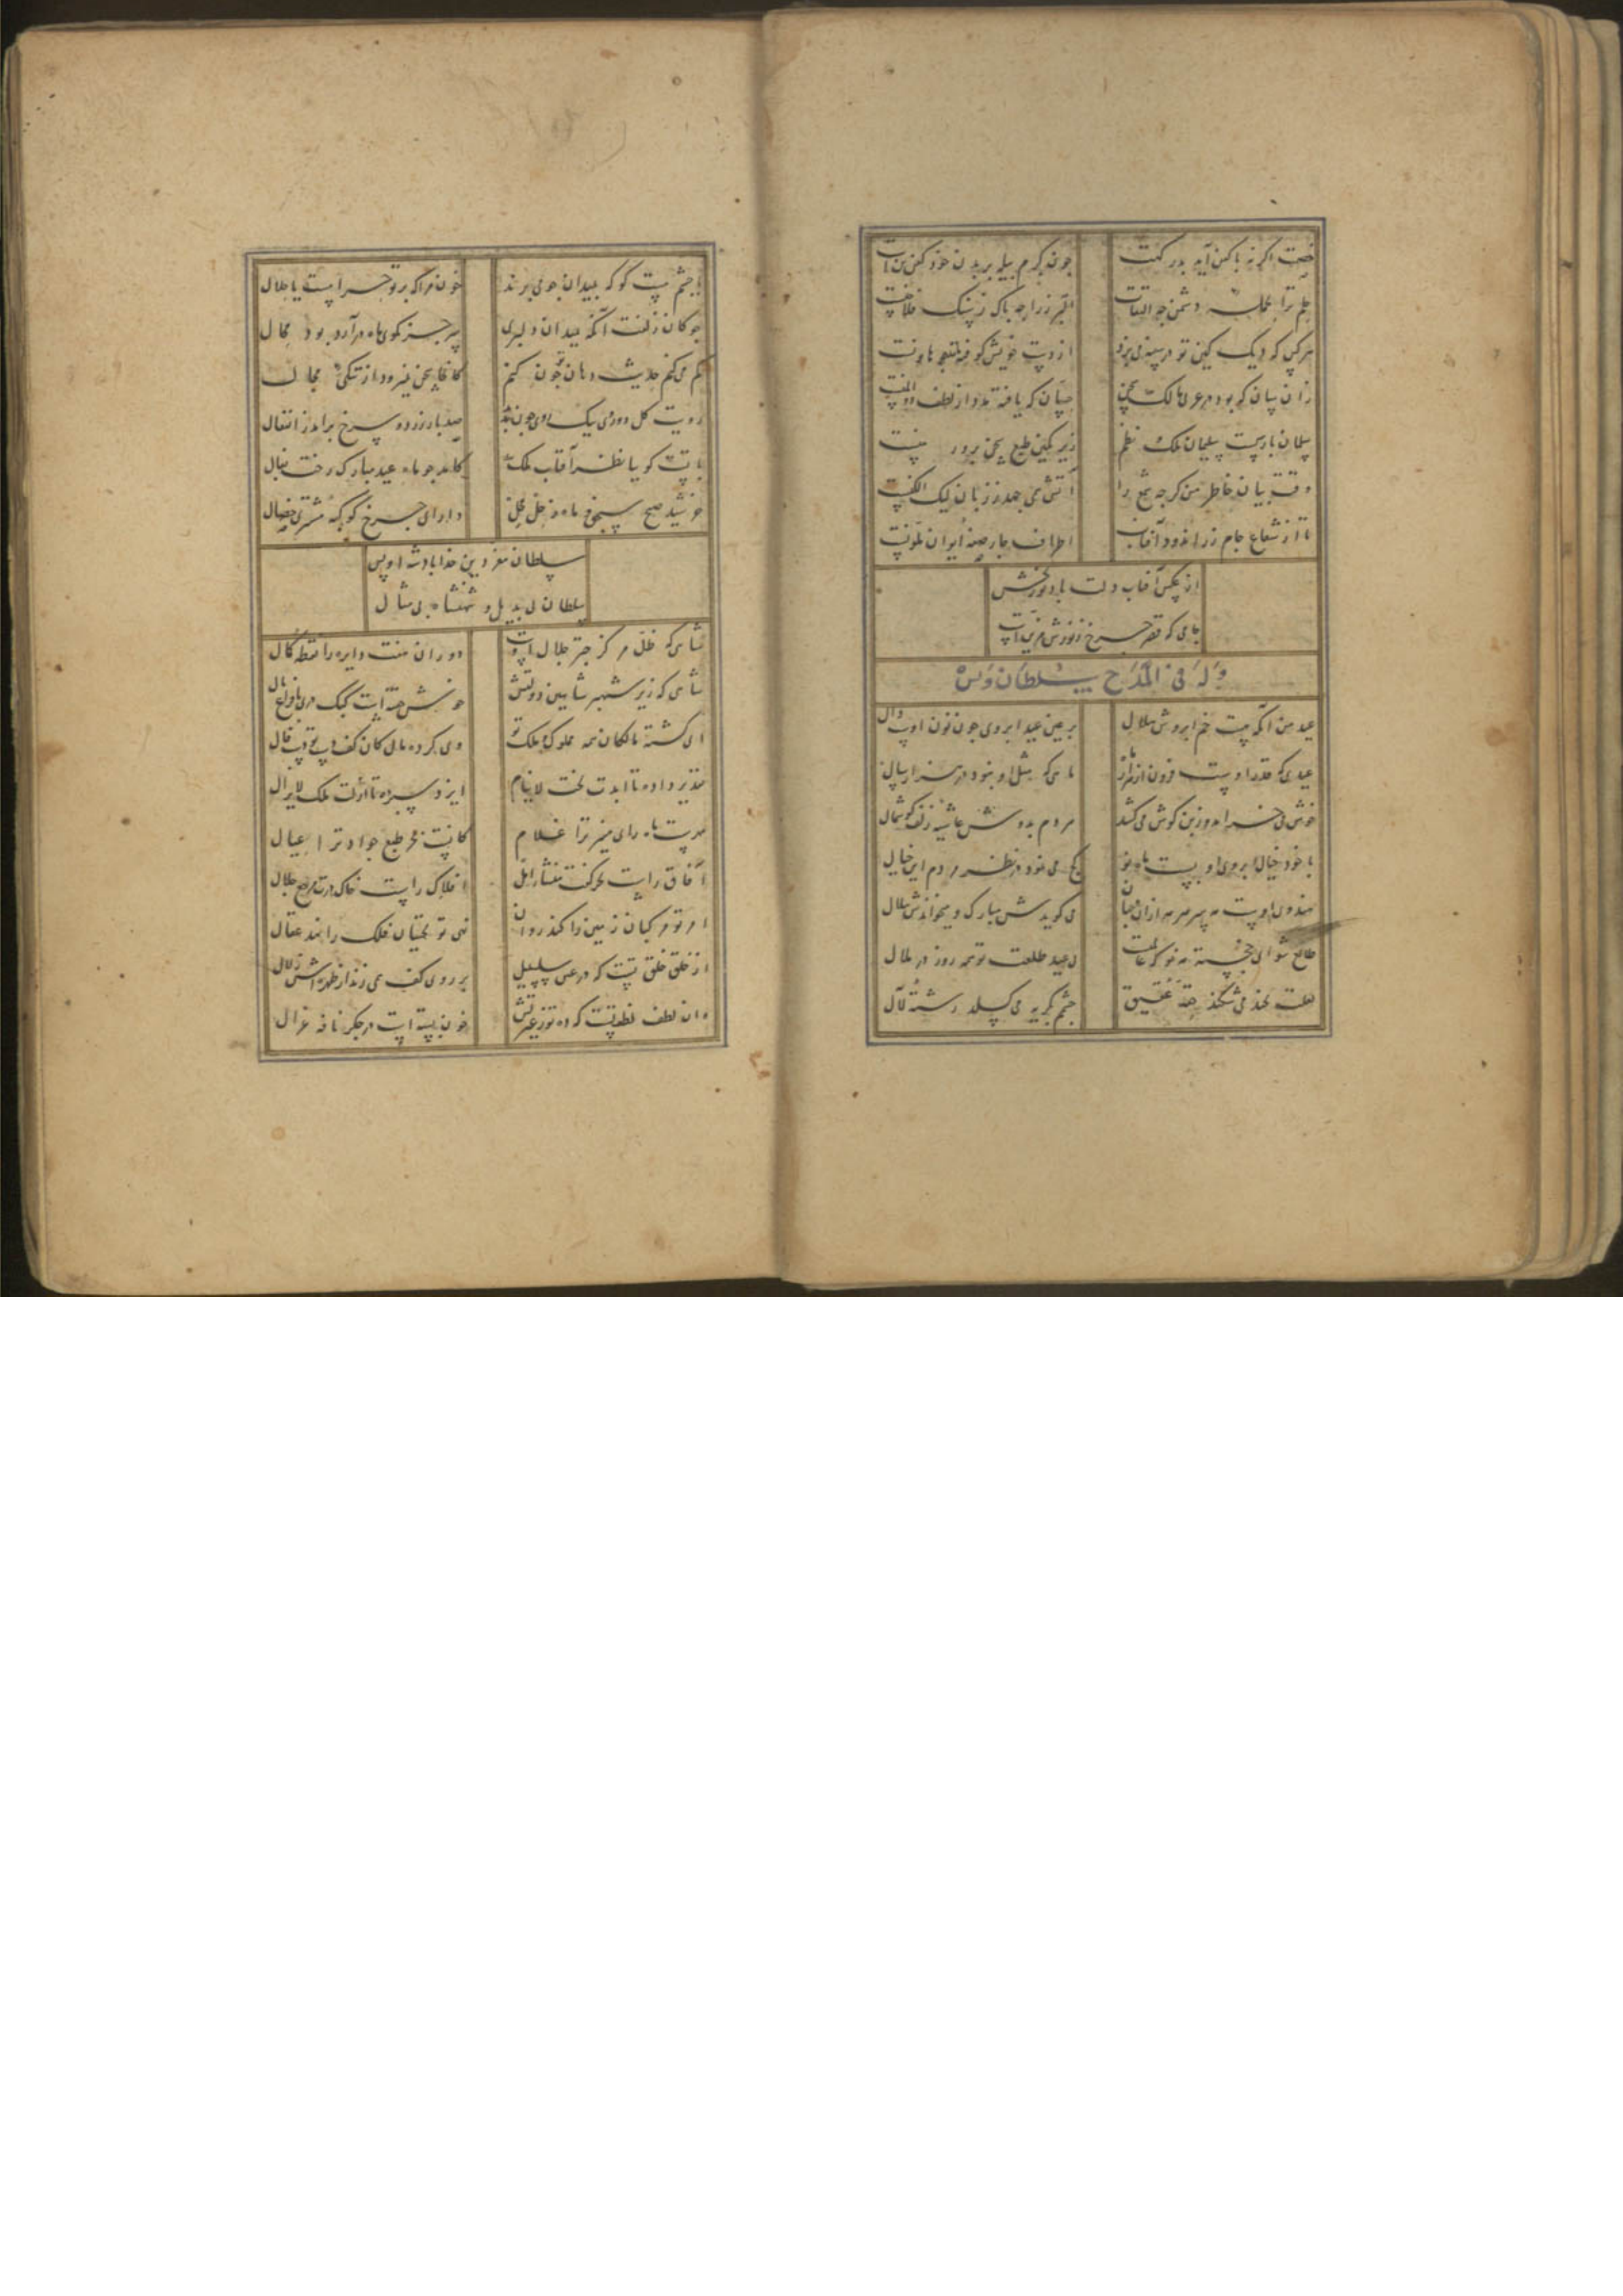 خصمت اگر نه با کفن آید بدر کهت
چون کرم پیله بر بدن خود کفن تن است
حلم ترا بحمله دشمن چه التفات
البرز را چه باک ز سنک فلاخنست
هر کس که دیک کین تو در سینه می پزد
از دست خویش کوفته همچو هاونست
زان سان که بود در عرب مالک سخن
حسان که یافته مدد از لطف ذوالمنست
سلمان پارسیست سلیمان ملک نظم
زیر نکین طبع سخن پرور منست
وقت بیان خاطر من کرچه شمع را
آتش همی جهد ز زبان لیک الکنست
تا از شعاع جام زر اندود آفتاب
اطراف چار صفه ایوان ملونست
از عکس آفتاب دلت باد نوربخش
جامی که قصر چرخ ز نورش مزینست
وله فی المدح سلطان ویس
عید من آنکه هست خم ابروش هلال
بر عین عید ابروی چون نون اوست دال
عیدی که قدر اوست فزون از هزار ماه
ماهی که مثل او نبود در هزار سال
خوش می خرامد و زبن کوش می کشد
مردم بدوش غاشیه زلف کوشمال
با خود خیال ابروی او بست ماه نو
کج می نمود در نظر مردم این خیال
هندوی اوست مه بسر مه از آن جهان
می کویدش مبارک و میخواندش هلال
طالع شو ای خجسته مه نو که غایبست
بی عید طلعت تو مه روزه در ملال
لعلت بخنده می شکند حقه عقیق
چشمم بکریه می کسلد رشته لآل
با چشم مست کو که بمیدان چو می برند
خون مرا که بر تو حرامست یا حلال
چوکان زلفت آنکه میدان دلبری
بر جز کوی ماه در آرد بود مجال
کم می کنم حدیث دهان تو چون کنم
کانجا سخن نمیرود از تنکی مجال
رویت کل دو روی بیک روی چون بدید
صد بار زرد و سرخ برآمد ز انفعال
ماتت کویا نظر آفتاب ملک
کامد چو ماه عید مبارک رخت بفال
خورشید صبح سنجق و ماه زحل محل
دارای چرخ کوکبه مشتری خصال
سلطان معز دین خدا پادشه اویس
سلطان بی بدیل و شهنشاه بی مثال
شاهی که ظل مرکز چتر جلال اوست
دوران هفت دایره را نقطه کمال
شاهی که زیر شهپر شاهین دولتش
خوش خفته است کبک دری با فراغ بال
ای کشته مالکان همه مملوک ملک تو
وی کرده مال کان کف دست تو پایمال
تقدیر داده تا ابدت تخت لاینام
ایزد سپرده تا ازلت ملک لایزال
بدرست ماه رای منیر ترا غلام
کانست بحر طبع جواد ترا عیال
آفاق راست تحرکت منشأ امل
افلاک راست خاک درت مرجع جلال
امر تو مرکبان زمین را کند روان
نهی تو بختیان فلک را نهد عقال
از خلق خلق تست که در عین سلسبیل
بر روی کف همی زند از طیره اش زلال
وان لطف لطف تست که در توزی عیرتش
خون بسته است در جکر نافه غزال